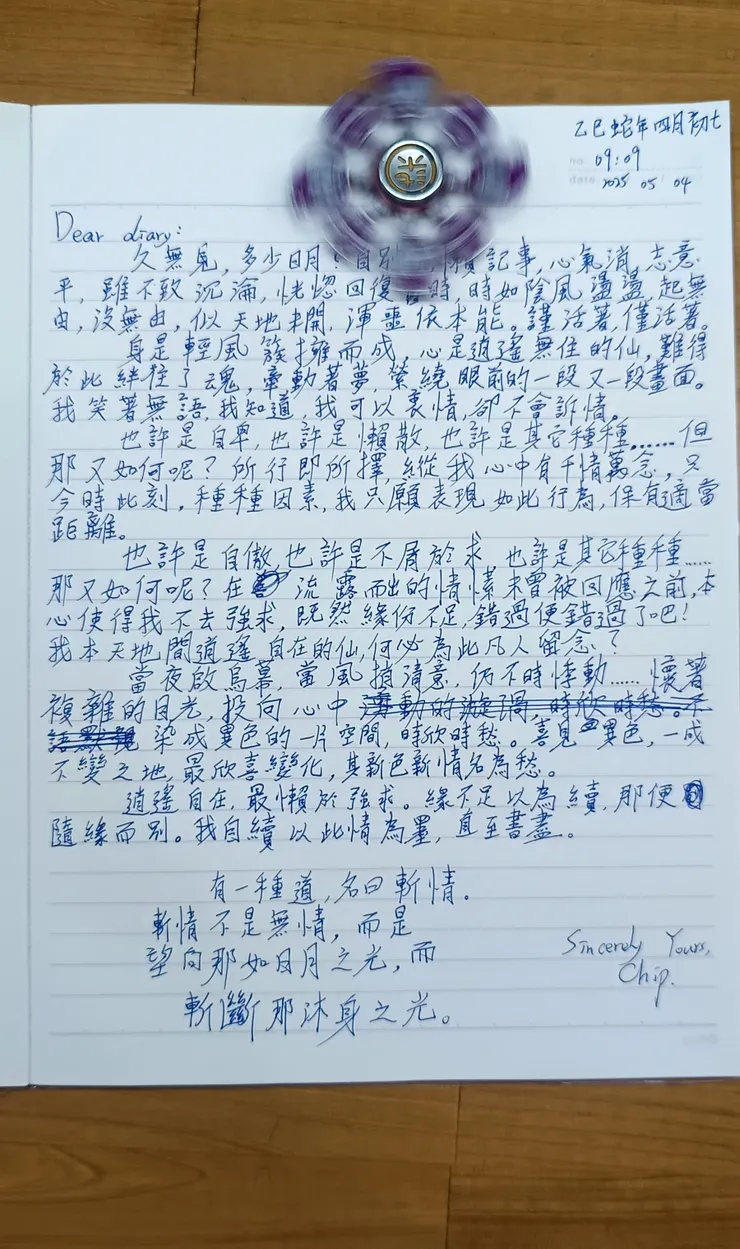 乙巳蛇年四月初七
no 09:09
date 2025 05 04
Dear diary:
久無見,多少日月!自別 懶記事,心氣消,志意
平,雖不致沉淪,恍惚回復 時,時如陰風盪盪,起無
由,沒無由,似天地未開,渾噩依本能。謹活著,僅活著。
身是輕風簇擁而成,心是逍遙無住的仙,難得
於此絆住了魂,牽動著夢,縈繞眼前的一段又一段畫面。
我笑著無語,我知道,我可以衷情,卻不會訴情。
也許是自卑,也許是懶散,也許是其它種種......但
那又如何呢?所行即所擇,縱我心中有千情萬念,只
今時此刻,種種因素,我只願表現如此行為,保有適當
距離。
也許是自傲,也許是不屑於求 也許是其它種種......
那又如何呢?在 流露而出的情愫未曾被回應之前,本
心使得我不去強求,既然緣份不足,錯過便錯過了吧!
我本天地間逍遙自在的仙,何必為此凡人留念?
當夜啟烏幕,當風捎清意,仍不時悸動......懷著
複雜的目光,投向心中 動的漩渦 時欣時愁。不
語 染成異色的一片空間,時欣時愁。喜見異色,一成
不變之地,最欣喜變化,其新色新情名為愁。
逍遙自在,最懶於強求。緣不足以為續,那便
隨緣而別。我自續以此情為墨,直至書盡。
有一種道,名曰斬情。
斬情不是無情,而是
望向那如日月之光,而
斬斷那沐身之光。
Sincerely Yours,
Chip.